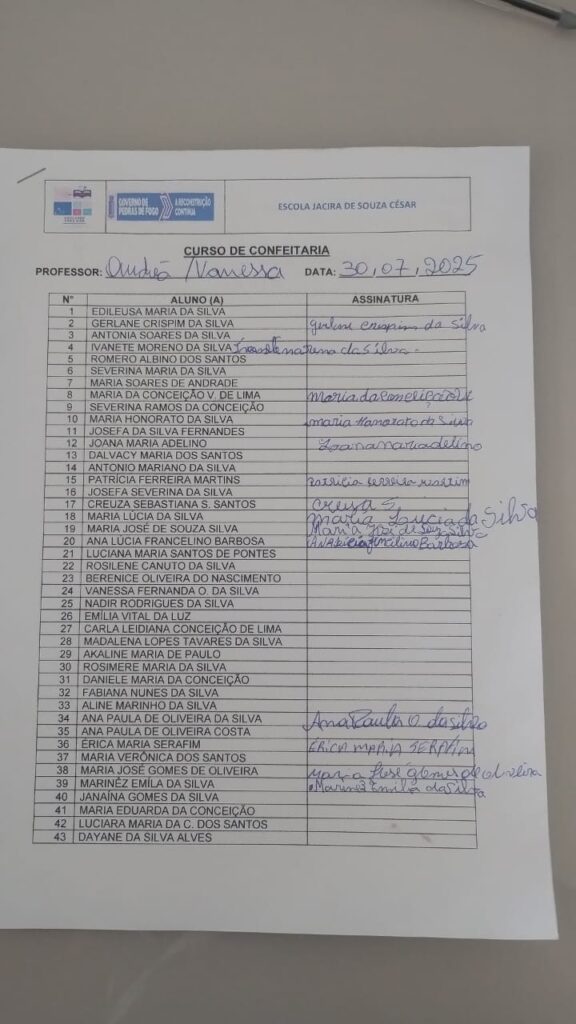 GOVERNO DE PEDRAS DE FOGO A RECONSTRUÇÃO CONTINUA ESCOLA JACIRA DE SOUZA CÉSAR
CURSO DE CONFEITARIA
PROFESSOR: André / Vanessa DATA: 30,07,2025
N° ALUNO (A) ASSINATURA
1 EDILEUSA MARIA DA SILVA
2 GERLANE CRISPIM DA SILVA gerlane crispim da Silva
3 ANTONIA SOARES DA SILVA
4 IVANETE MORENO DA SILVA da Silva
5 ROMERO ALBINO DOS SANTOS
6 SEVERINA MARIA DA SILVA
7 MARIA SOARES DE ANDRADE
8 MARIA DA CONCEIÇÃO V. DE LIMA maria da conceição
9 SEVERINA RAMOS DA CONCEIÇÃO
10 MARIA HONORATO DA SILVA maria Honorato da Silva
11 JOSEFA DA SILVA FERNANDES
12 JOANA MARIA ADELINO Joana maria delino
13 DALVACY MARIA DOS SANTOS
14 ANTONIO MARIANO DA SILVA
15 PATRÍCIA FERREIRA MARTINS patricia ferreira
16 JOSEFA SEVERINA DA SILVA
17 CREUZA SEBASTIANA S. SANTOS creusa S
18 MARIA LÚCIA DA SILVA maria Lucia da Silva
19 MARIA JOSÉ DE SOUZA SILVA Maria José de Souza Silva
20 ANA LÚCIA FRANCELINO BARBOSA Barbosa
21 LUCIANA MARIA SANTOS DE PONTES
22 ROSILENE CANUTO DA SILVA
23 BERENICE OLIVEIRA DO NASCIMENTO
24 VANESSA FERNANDA O. DA SILVA
25 NADIR RODRIGUES DA SILVA
26 EMÍLIA VITAL DA LUZ
27 CARLA LEIDIANA CONCEIÇÃO DE LIMA
28 MADALENA LOPES TAVARES DA SILVA
29 AKALINE MARIA DE PAULO
30 ROSIMERE MARIA DA SILVA
31 DANIELE MARIA DA CONCEIÇÃO
32 FABIANA NUNES DA SILVA
33 ALINE MARINHO DA SILVA
34 ANA PAULA DE OLIVEIRA DA SILVA Ana Paula O. da silva
35 ANA PAULA DE OLIVEIRA COSTA
36 ÉRICA MARIA SERAFIM ÉRICA MARIA SERAFIM
37 MARIA VERÔNICA DOS SANTOS
38 MARIA JOSÉ GOMES DE OLIVEIRA Maria José gomes de oliveira
39 MARINÊZ EMÍLA DA SILVA Marinez Emilia da Silva
40 JANAÍNA GOMES DA SILVA
41 MARIA EDUARDA DA CONCEIÇÃO
42 LUCIARA MARIA DA C. DOS SANTOS
43 DAYANE DA SILVA ALVES